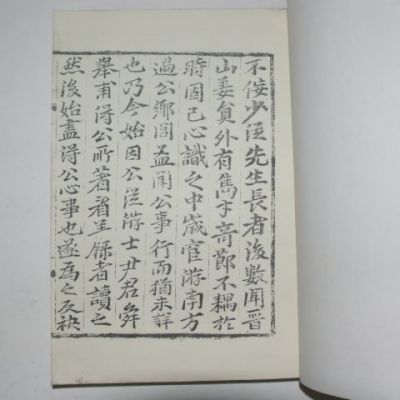 不佞少從先生長者後數聞晋
山姜貟外有雋才奇節不耦於
時固已心識之中歳宦游南方
過公鄉閭益聞公事行而猶未詳
也乃今始因公從游士尹君舜
舉甫得公所著省呈錄者讀之
然後始盡得公心事也遂爲之反袂